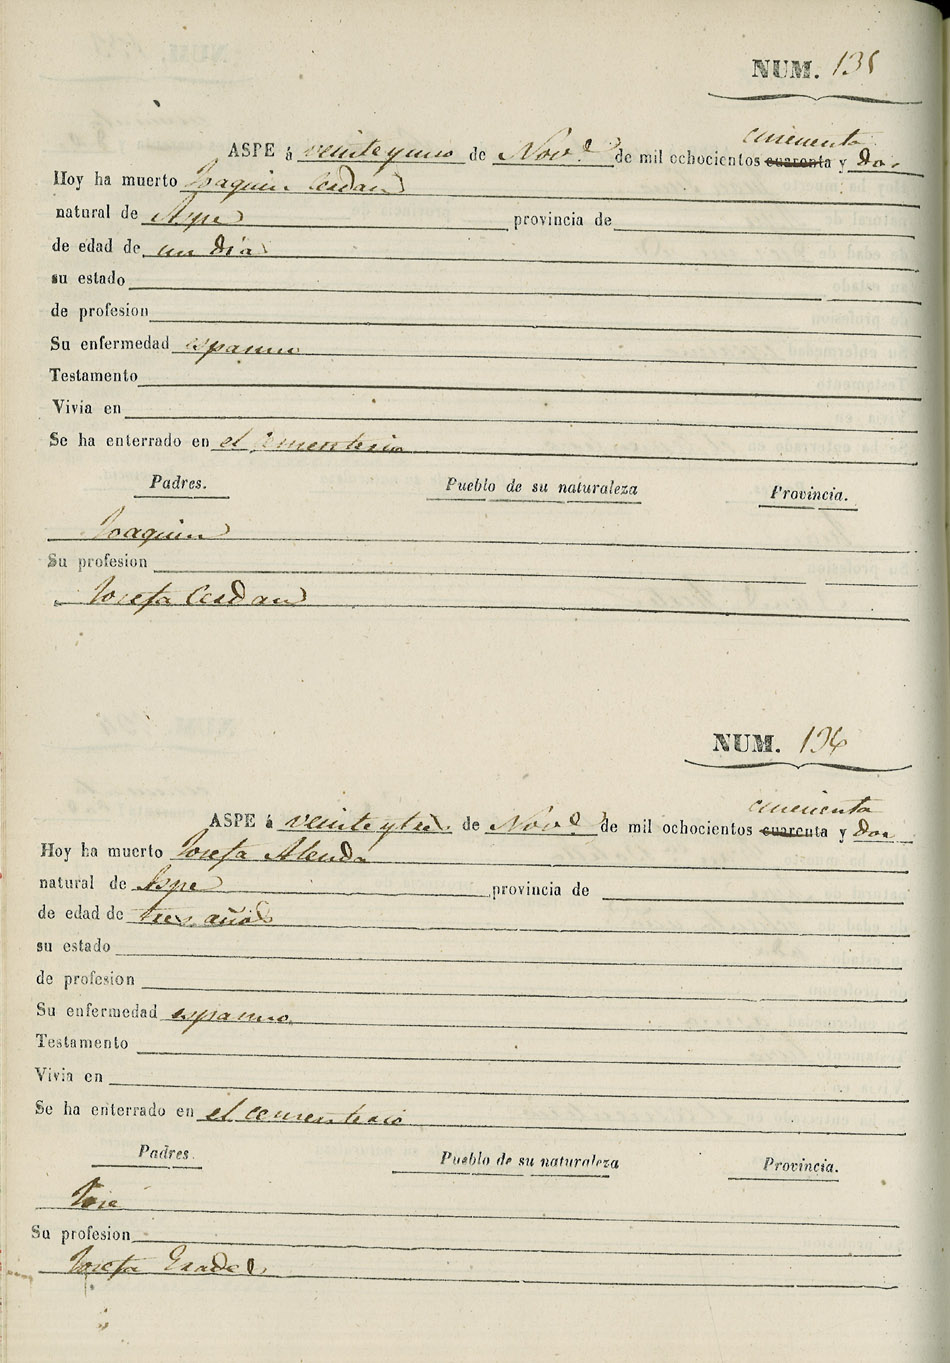 NUM. 135
cincuenta
ASPE á veinte y uno de Nov.e de mil ochocientos cuarenta y dos
Hoy ha muerto Joaquin Cerdan
natural de Aspe provincia de
de edad de un dia
su estado
de profesion
Su enfermedad espasmo
Testamento
Vivia en
Se ha enterrado en el cementerio
Padres. Pueblo de su naturaleza Provincia.
Joaquin
Su profesion
Josefa Cerdan
NUM. 136
cincuenta
ASPE á veinte y tres de Nov.e de mil ochocientos cuarenta y dos
Hoy ha muerto Josefa Alenda
natural de Aspe provincia de
de edad de tres años
su estado
de profesion
Su enfermedad espasmo
Testamento
Vivia en
Se ha enterrado en el cementerio
Padres. Pueblo de su naturaleza Provincia.
José
Su profesion
Josefa